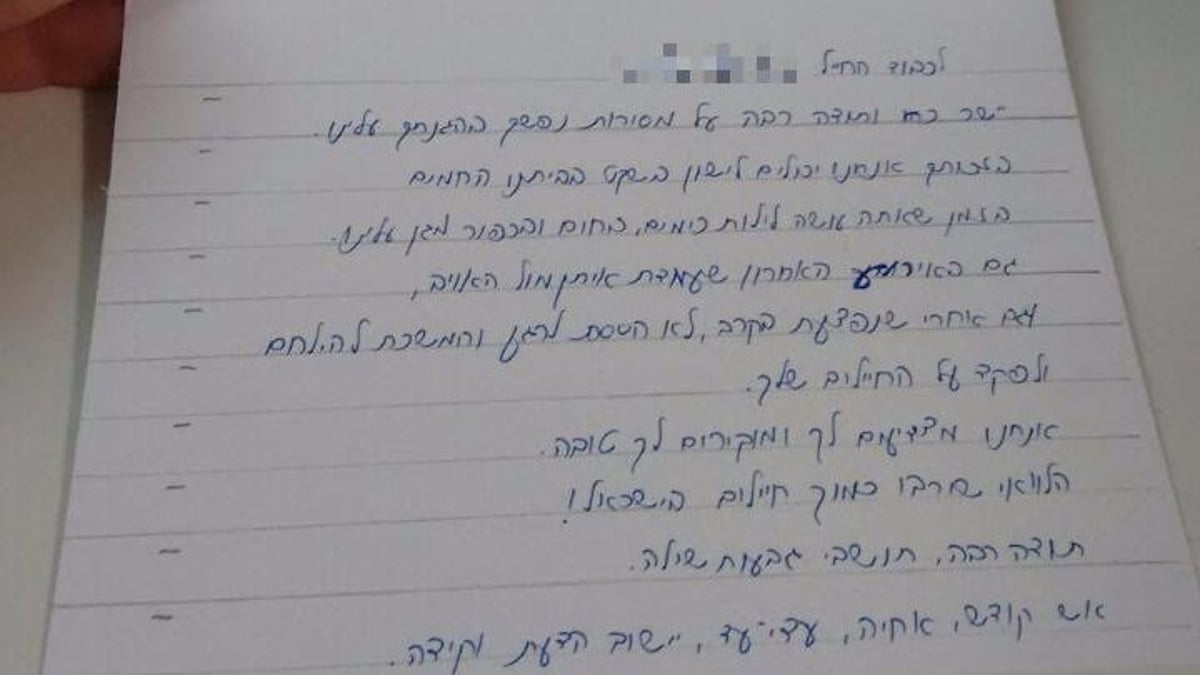 לכבוד החייל
יישר כח ותודה רבה על מסירות נפשך בהגנתך עלינו.
בזכותך אנחנו יכולים לישון בשקט בביתנו החמים
בזמן שאתה עושה לילות כימים, בחום ובכפור מגן עלינו.
גם באירוע האחרון שעמדת איתן מול האויב,
וגם אחרי שנפצעת בקרב, לא הססת לרגע והמשכת להילחם
ולפקד על החיילים שלך.
אנחנו מצדיעים לך ומוקירים לך טובה.
הלוואי שירבו כמוך חיילים בישראל!
תודה רבה, תושבי גבעות שילה.
אש קודש, אחיה, עדי-עד, יישוב הדעת וקידה.